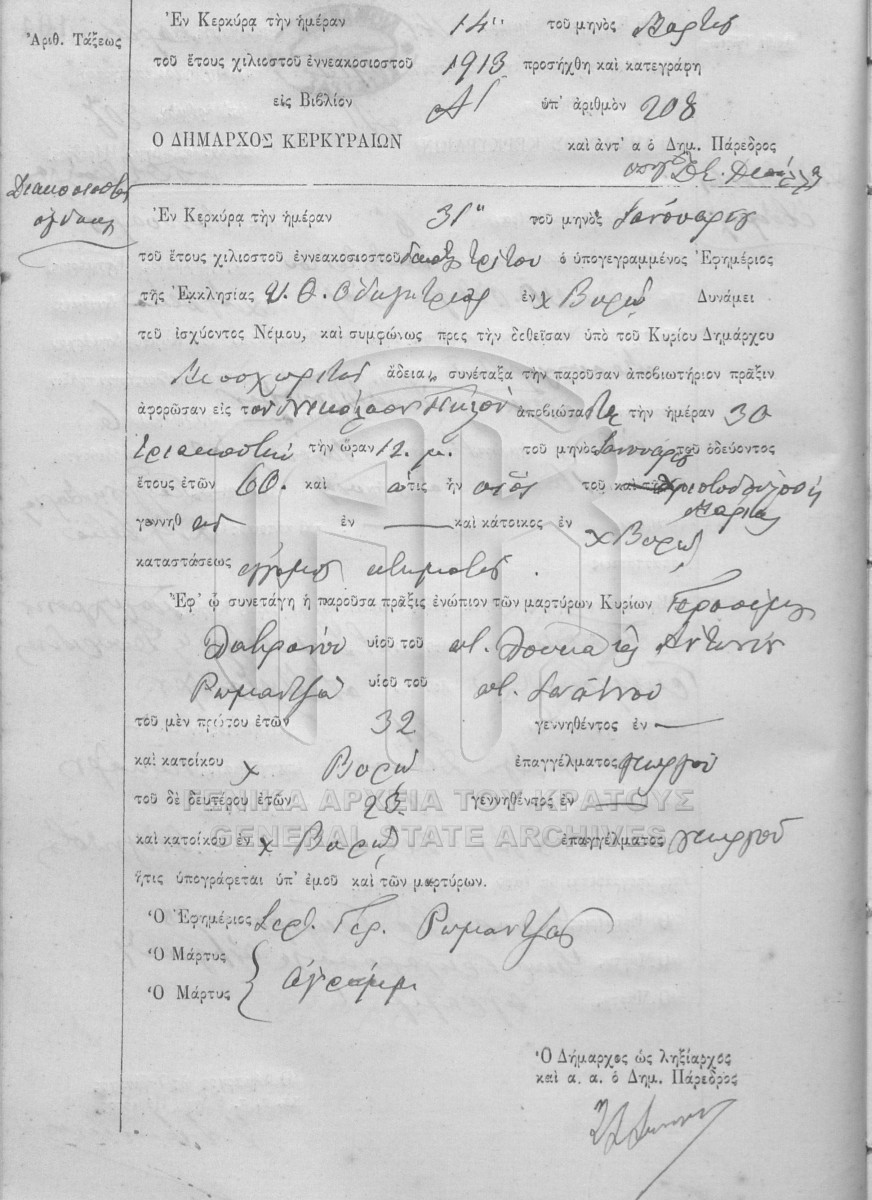 Ἀριθ. Τάξεως
Ἐν Κερκύρᾳ τὴν ἡμέραν 14ην τοῦ μηνὸς Μαρτίου
τοῦ ἔτους χιλιοστοῦ ἐννεακοσιοστοῦ 1913 προσήχθη καὶ κατεγράφη
εἰς Βιβλίον Α! ὑπ' ἀριθμὸν 208
Ο ΔΗΜΑΡΧΟΣ ΚΕΡΚΥΡΑΙΩΝ καὶ ἀντ' α ὁ Δημ. Πάρεδρος
Διακοσιοστὸς
ὄγδοος
Ἐν Κερκύρᾳ τὴν ἡμέραν 31η τοῦ μηνὸς Ἰανουαρίου
τοῦ ἔτους χιλιοστοῦ ἐννεακοσιοστοῦ δεκάτου τρίτου ὁ ὑπογεγραμμένος Ἐφημέριος
τῆς Ἐκκλησίας Υ. Θ. Οδηγητρίας ἐν χ Βορῷ Δυνάμει
τοῦ ἰσχύοντος Νόμου, καὶ συμφώνως προς τὴν δοθεῖσαν ὑπὸ τοῦ Κυρίου Δημάρχου
Μεσοχωριτῶν ἄδειαν, συνέταξα τὴν παροῦσαν ἀποβιωτήριον πρᾶξιν
ἀφορῶσαν εἰς τὸν Νικόλαον ἀποβιώσαντα τὴν ἡμέραν 30
τριακοστὴν τὴν ὥραν 12. μ. τοῦ μηνὸς Ἰανουαρίου τοῦ ὁδεύοντος
ἔτους ἐτῶν 60. καὶ ὅστις ἦν υἱὸς τοῦ καὶ τῆς Χριστοδούλου ἢ
Μαρίας
γεννηθεὶς ἐν — καὶ κάτοικος ἐν χ Βορῷ
καταστάσεως ἔγγαμος κτηματίας.
Ἐφ' ᾧ συνετάγη ἡ παροῦσα πρᾶξις ἐνώπιον τῶν μαρτύρων Κυρίων Γερασίμου
υἱοῦ τοῦ Λουκᾶ καὶ Ἀντωνίου
Ρωμαντζᾶ υἱοῦ τοῦ Ἰωάννου
τοῦ μὲν πρώτου ἐτῶν 32 γεννηθέντος ἐν —
καὶ κατοίκου χ Βορῷ ἐπαγγέλματος γεωργοῦ
τοῦ δὲ δευτέρου ἐτῶν 25 γεννηθέντος ἐν —
καὶ κατοίκου ἐν χ Βορῷ ἐπαγγέλματος γεωργοῦ
ἥτις ὑπογράφεται ὑπ' ἐμοῦ καὶ τῶν μαρτύρων.
Ὁ Ἐφημέριος Ἱερ. Ρωμαντζᾶς
Ὁ Μάρτυς
Ὁ Μάρτυς ἀγράμμ
Ὁ Δήμαρχος ὡς ληξίαρχος
καὶ α. α. ὁ Δημ. Πάρεδρος
ΓΕΝΙΚΑ ΑΡΧΕΙΑ ΤΟΥ ΚΡΑΤΟΥΣ
GENERAL STATE ARCHIVES